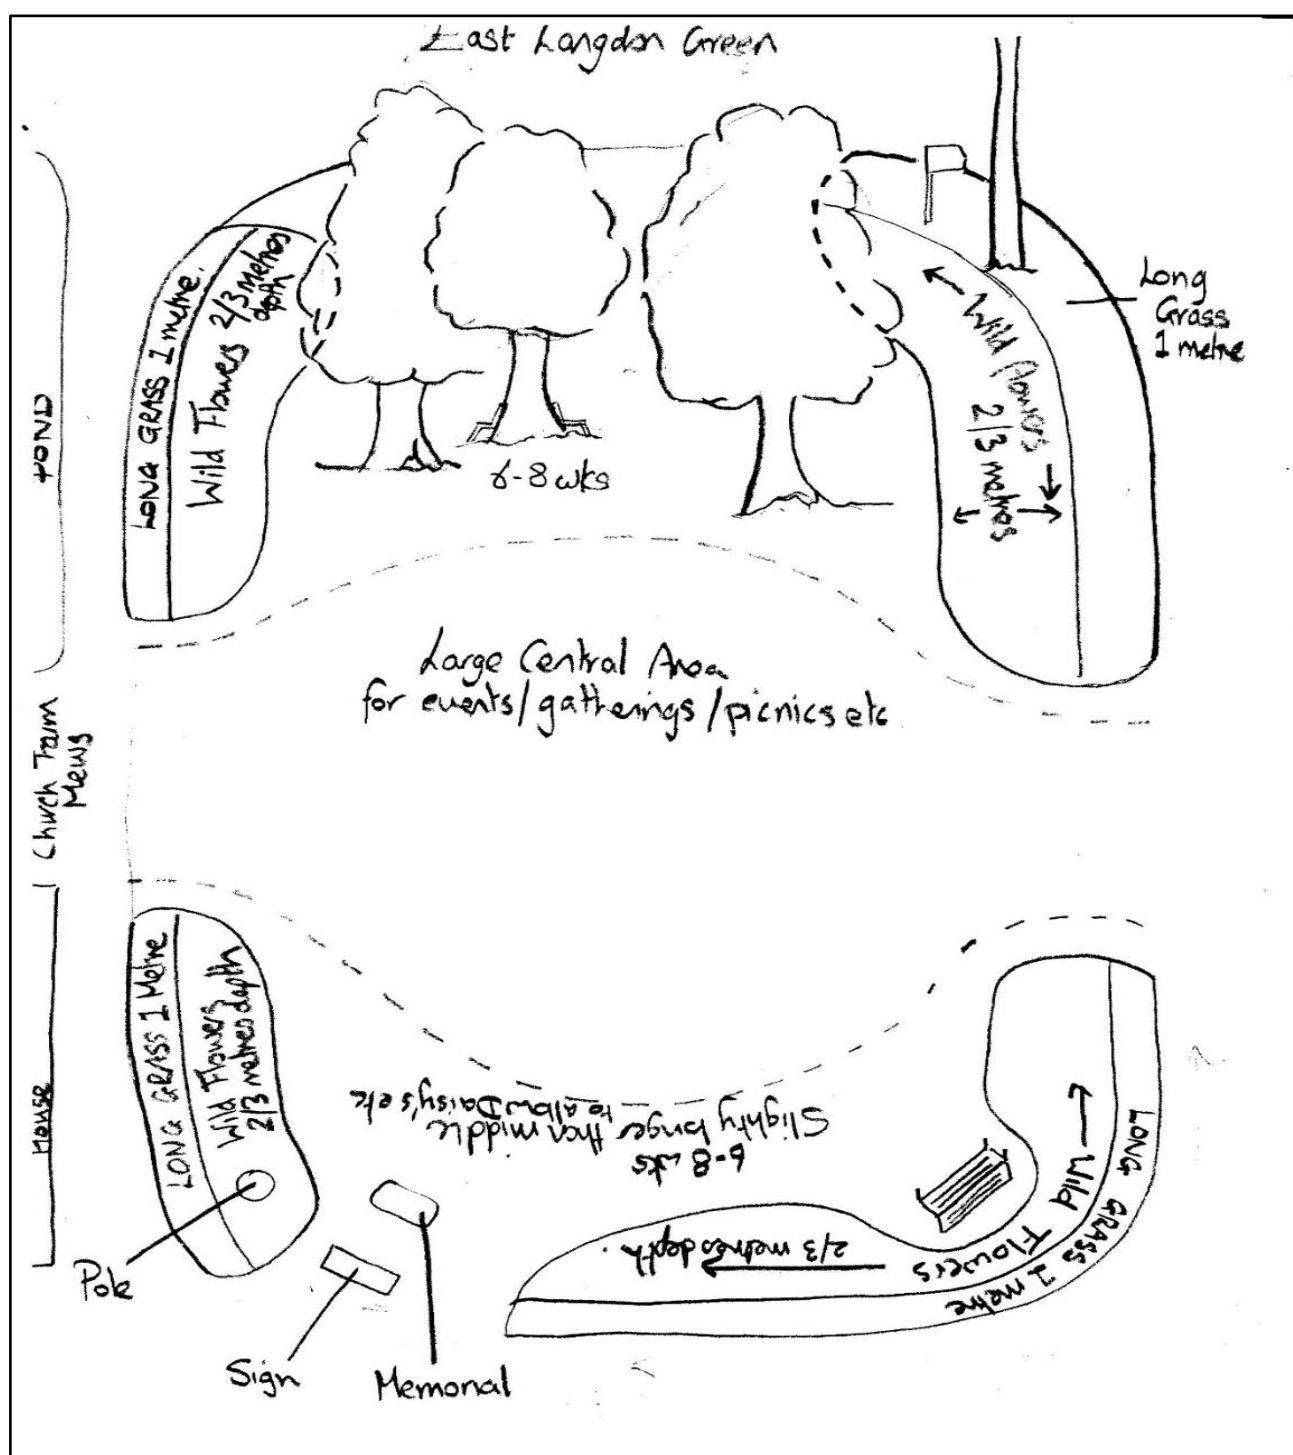 East Langdon Green
LONG GRASS 1 metre.
Wild Flowers 2/3 metres
depth
POND
6-8 wks
Wild flowers
2/3 metres
Long
Grass
1 metre
Large Central Area
for events/gatherings/picnics etc
Church Farm
Mews
House
LONG GRASS 1 Metre
Wild Flowers
2/3 metres depth
6-8 wks
Slighty longer than middle
to allow Daisy's etc
Wild Flowers
2/3 metres depth.
LONG GRASS 1 metre
Pole
Sign
Memorial